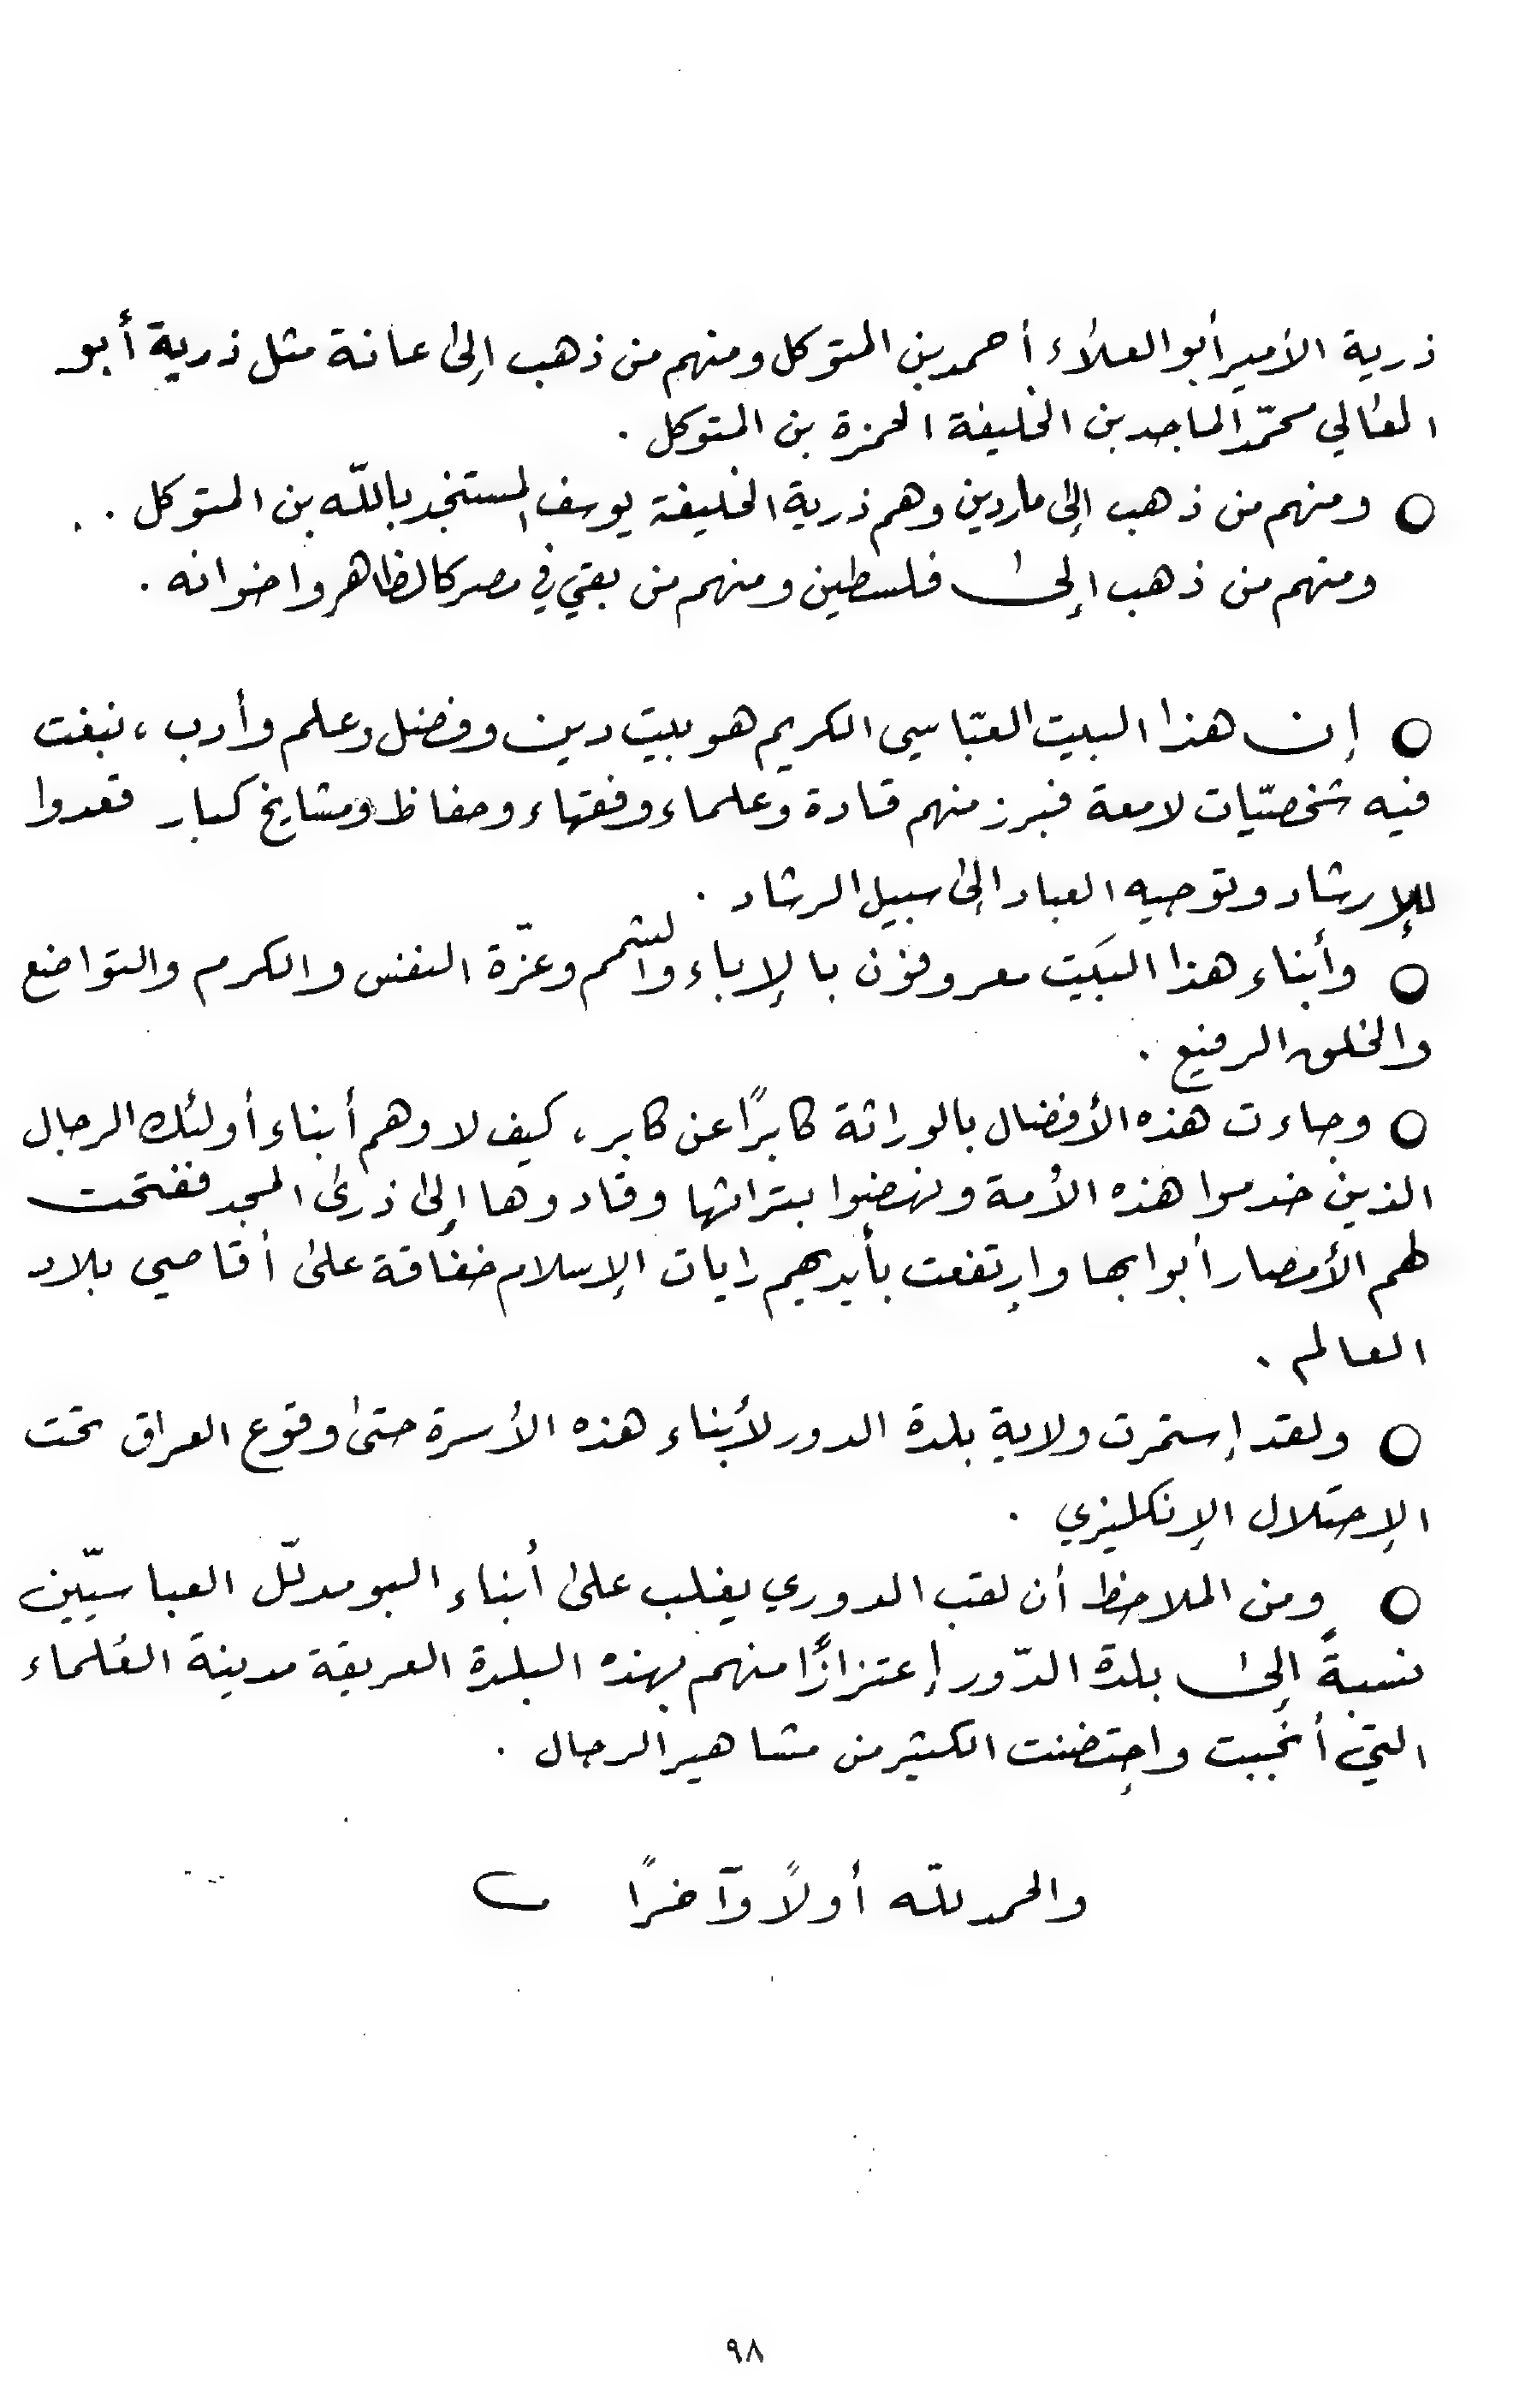 ذرية الأمير أبو العلاء أحمد بن المتوكل ومنهم من ذهب إلى عانة مثل ذرية أبو
المعالي محمّد الماجد بن الخليفة الحمزة بن المتوكل .
○ ومنهم من ذهب إلى ماردين وهم ذرية الخليفة يوسف المستنجد باللّه بن المتوكل .
ومنهم من ذهب إلى فلسطين ومنهم من بقي في مصر كالظاهر واخوانه .
○ إن هذا البيت العبّاسي الكريم هو بيت دين وفضل وعلم وأدب ، نبغت
فيه شخصيّات لامعة فبرز منهم قادة وعلماء وفقهاء وحفاظ ومشايخ كبار قعدوا
للإرشاد وتوجيه العباد إلى سبيل الرشاد .
○ وأبناء هذا البَيت معروفون بالإباء والشمم وعزّة النفس والكرم والتواضع
والخلق الرفيع .
○ وجاءت هذه الأفضال بالوراثة كابرًا عن كابر ، كيف لا وهم أبناء أولئك الرجال
الذين خدموا هذه الأمة ونهضوا بتراثها وقادوها إلى ذرى المجد ففتحت
لهم الأمصار أبوابها وإرتفعت بأيديهم رايات الإسلام خفاقة على أقاصي بلاد
العالم .
○ ولقد إستمرت ولاية بلدة الدور لأبناء هذه الأسرة حتى وقوع العراق تحت
الإحتلال الإنكليزي .
○ ومن الملاحظ أن لقب الدوري يغلب على أبناء البو مدلّل العباسيّين
نسبةً إلى بلدة الدّور إعتزازًا منهم بهذه البلدة العريقة مدينة العُلماء
التي أنجبت وإحتضنت الكثير من مشاهير الرجال .
والحمد للّه أولاً وآخرًا
٩٨